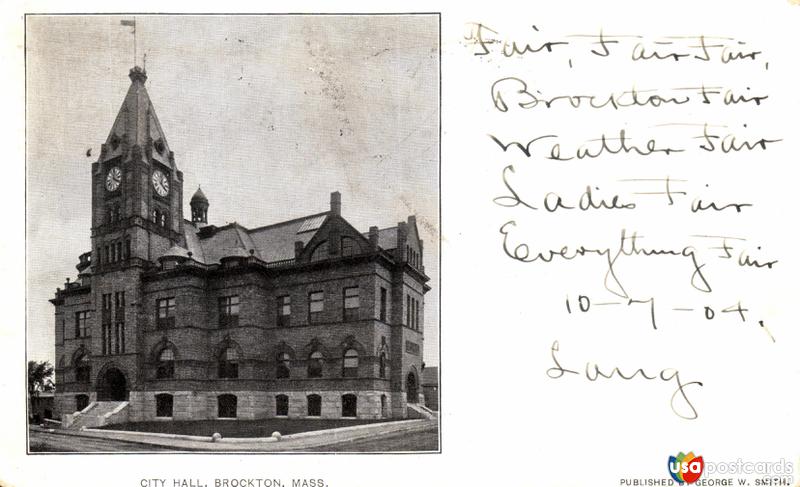 Fair, Fair Fair,
Brockton Fair
Weather Fair
Ladies Fair
Everything Fair
10-7-04.
Lang
CITY HALL, BROCKTON, MASS.
PUBLISHED BY GEORGE W. SMITH.
usapostcards
.com